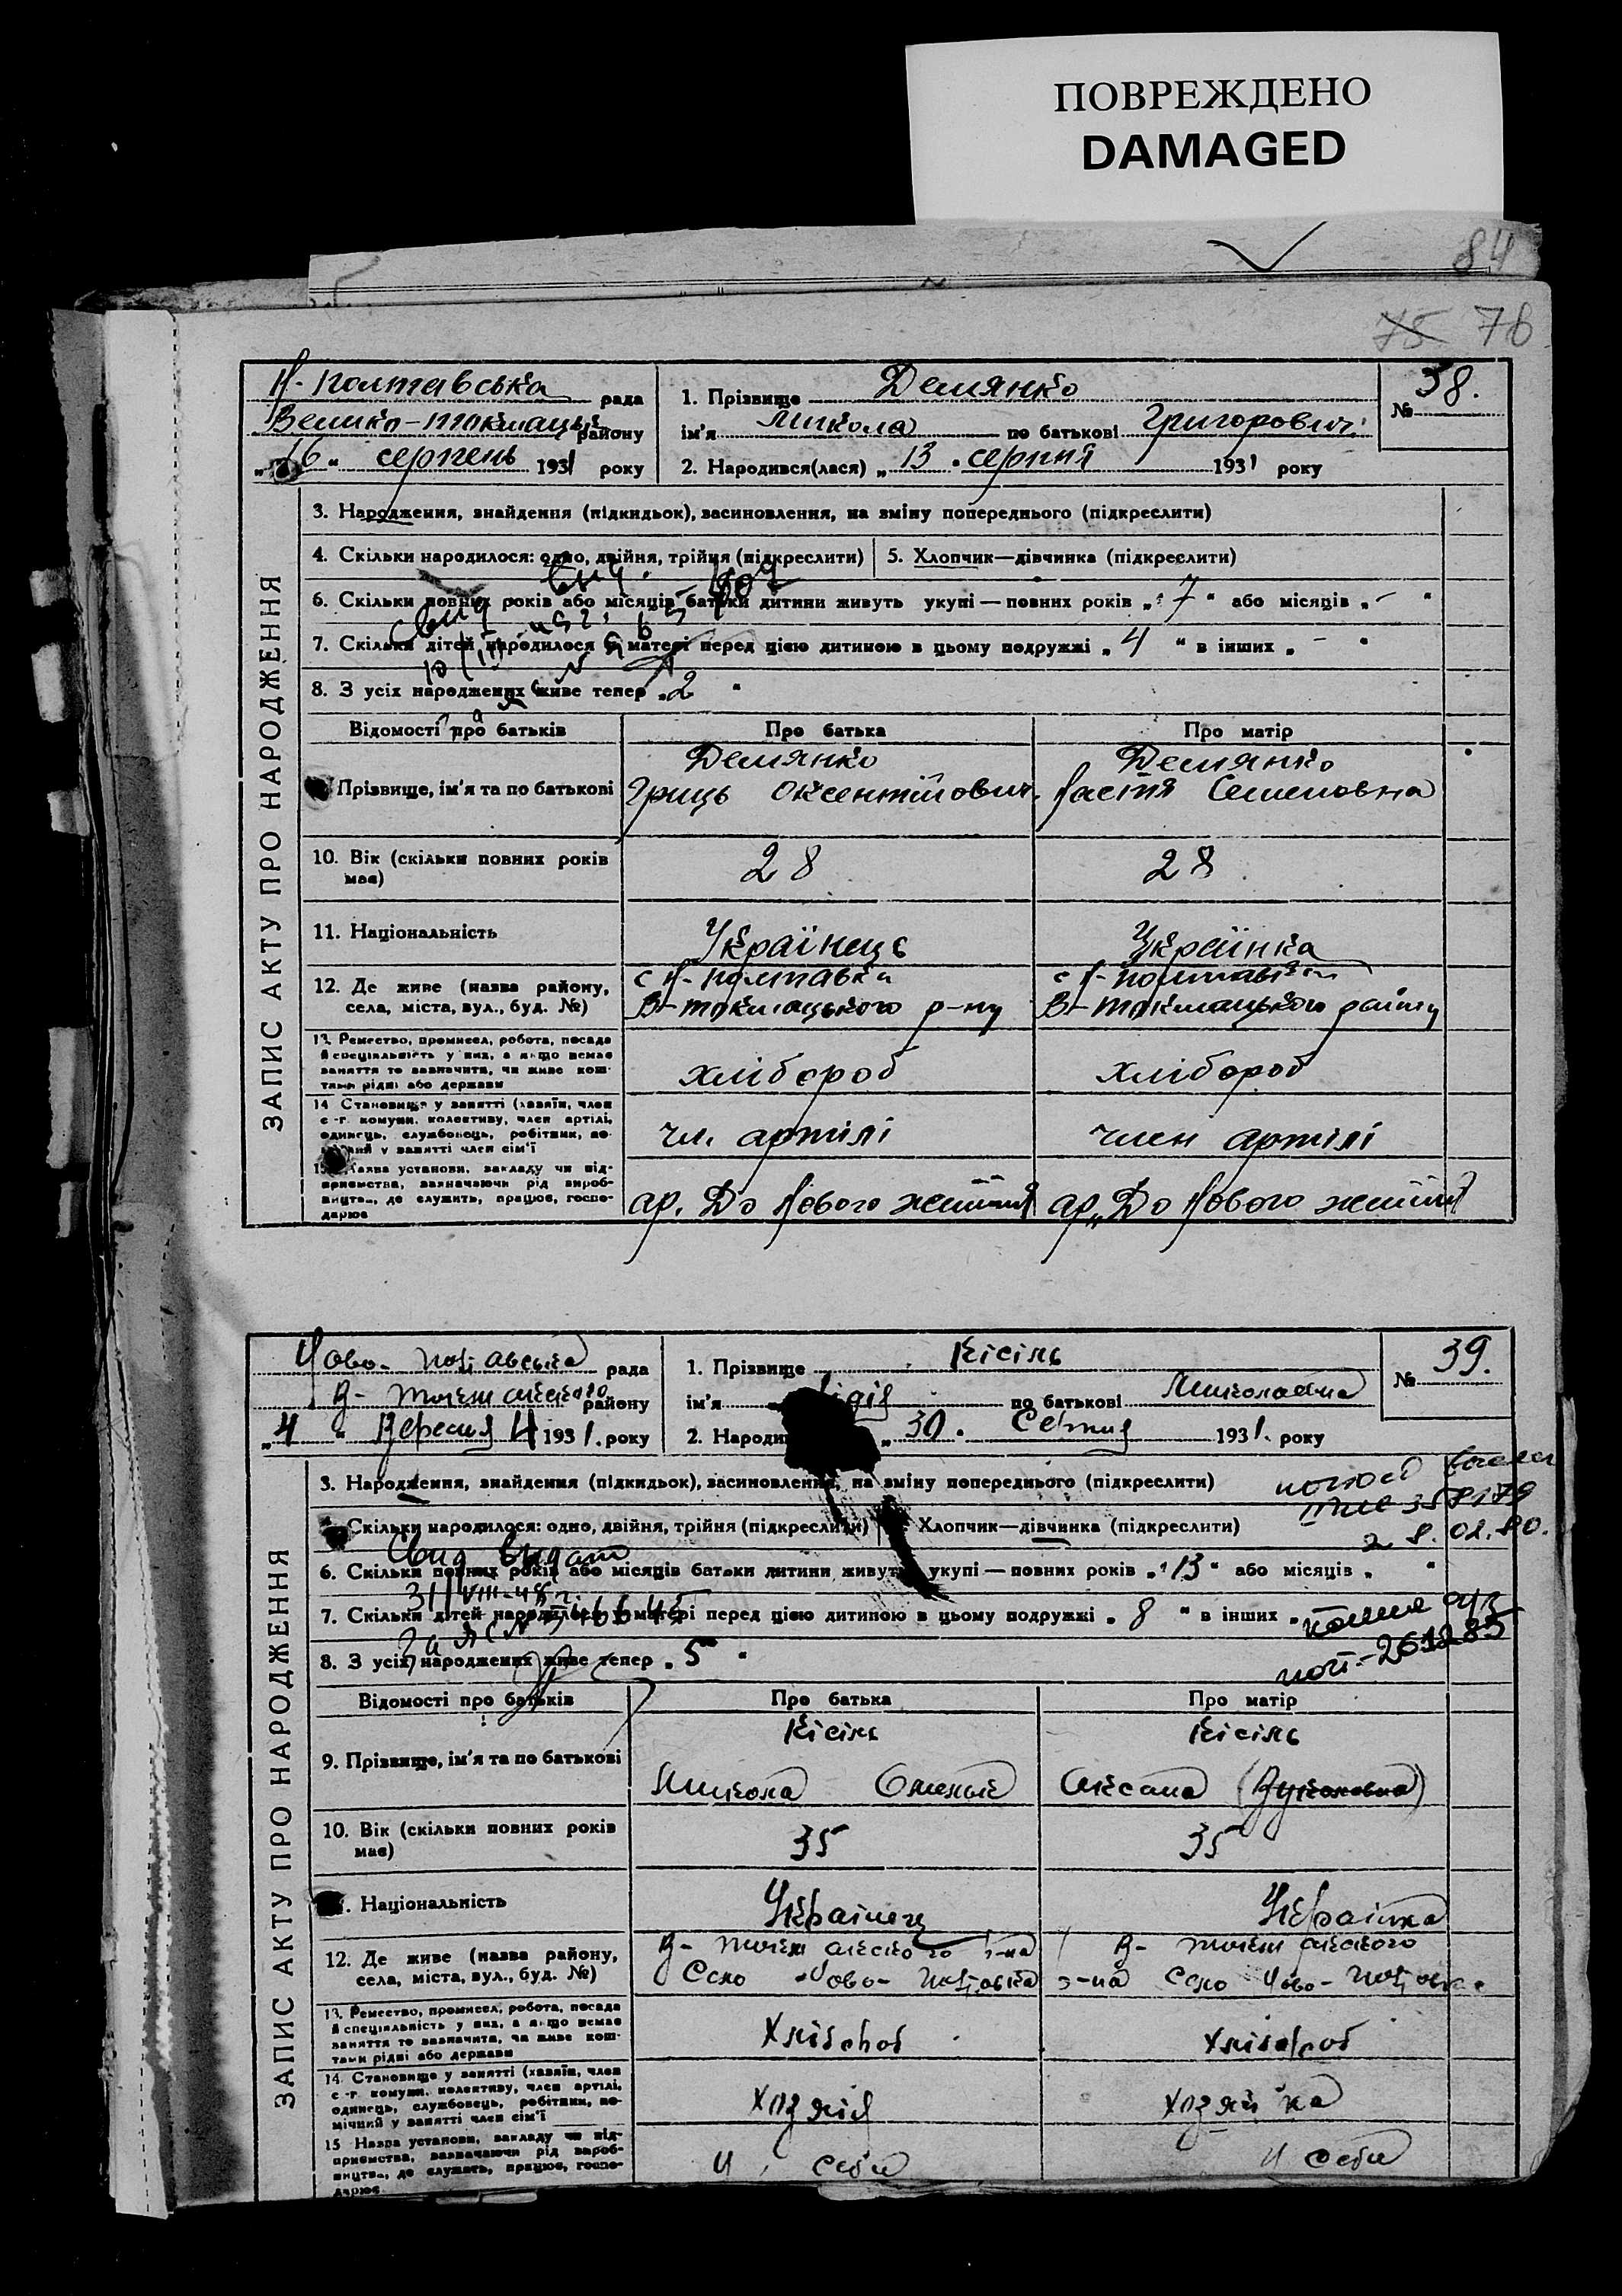 ПОВРЕЖДЕНО
DAMAGED
84
75 76
Н-Полтавська рада
Велико-Токмацьк району
„16“ серпень 1931 року
1. Прізвище Демянко
ім'я Микола по батькові Григорович
2. Народився(лася) „13“ серпня 1931 року
№ 38.
ЗАПИС АКТУ ПРО НАРОДЖЕННЯ
3. Народження, знайдення (підкидьок), засиновлення, на зміну попереднього (підкреслити)
4. Скільки народилося: одно, двійня, трійня (підкреслити) 5. Хлопчик—дівчинка (підкреслити)
6. Скільки повних років або місяців батьки дитини живуть укупі — повних років „7“ або місяців „-“
7. Скільки дітей народилося в матері перед цією дитиною в цьому подружжі „4“ в інших „-“
8. З усіх народжених живе тепер „2“
Відомості про батьків Про батька Про матір
Прізвище, ім'я та по батькові
Демянко Демянко
Гриць Оксентійович Настя Семеновна
10. Вік (скільки повних років має) 28 28
11. Національність Українець Українка
12. Де живе (назва району, села, міста, вул., буд. №)
с Н-Полтавки с Н-Полтавки
В-Токмацького р-ну В-Токмацького району
13. Ремество, промисел, робота, посада й спеціальність у них, а якщо немає заняття то зазначити, чи живе коштами рідні або держави
хлібороб хлібороб
14 Становище у занятті (хазяїн, член с.-г. комуни, колективу, член артілі, одинець, службовець, робітник, помічний у занятті член сім'ї
чл. артілі член артілі
15 Назва установи, закладу чи підприємства, зазначаючи рід виробництв., де служить, працює, господарює
ар. До Нового життя ар. „До Нового життя
Ново-Полтавська рада
В-Токмацького району
„4“ Вересня 1931. року
1. Прізвище Кісіль
ім'я по батькові Миколаєвна
2. Народи „30“ Серпня 1931. року
№ 39.
ЗАПИС АКТУ ПРО НАРОДЖЕННЯ
3. Народження, знайдення (підкидьок), засиновлення, на зміну попереднього (підкреслити)
Скільки народилося: одно, двійня, трійня (підкреслити) Хлопчик—дівчинка (підкреслити)
02.80.
Свид видано
6. Скільки повних років або місяців батьки дитини живуть укупі — повних років „13“ або місяців „ “
31/VIII-48 г.
7. Скільки дітей народилося в матері перед цією дитиною в цьому подружжі „8“ в інших „
8. З усіх народжених живе тепер „5“
Відомості про батьків Про батька Про матір
9. Прізвище, ім'я та по батькові
Кісіль Кісіль
Микола Оксана
10. Вік (скільки повних років має) 35 35
Національність Українець Українка
12. Де живе (назва району, села, міста, вул., буд. №)
В-Токмакского р-на В-Токмакского
Село Ново-Полтавка р-на Село Ново-Полтавка
13. Ремество, промисел, робота, посада й спеціальність у них, а якщо немає заняття то зазначити, чи живе коштами рідні або держави
Хлібороб Хлібороб
14 Становище у занятті (хазяїн, член с.-г. комуни, колективу, член артілі, одинець, службовець, робітник, помічний у занятті член сім'ї
Хозяїн Хозяйка
15 Назва установи, закладу чи підприємства, зазначаючи рід виробництв., де служить, працює, господарює
У себи У себи